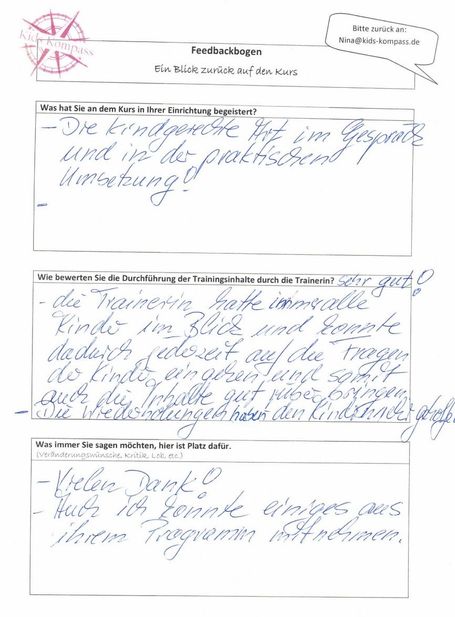 Kids Kompass
Bitte zurück an:
Nina@kids-kompass.de
Feedbackbogen
Ein Blick zurück auf den Kurs
Was hat Sie an dem Kurs in Ihrer Einrichtung begeistert?
- Die kindgerechte Art im Gespräch
und in der praktischen
Umsetzung!
-
Wie bewerten Sie die Durchführung der Trainingsinhalte durch die Trainerin? sehr gut!
- die Trainerin hatte immer alle
Kinder im Blick und konnte
dadurch jederzeit auf die Fragen
der Kinder eingehen und somit
auch die Inhalte gut rüber bringen
- Die Wiederholungen haben den Kindern
Was immer Sie sagen möchten, hier ist Platz dafür.
(Veränderungswünsche, Kritik, Lob, etc.)
- Vielen Dank!
- Auch ich konnte einiges aus
ihrem Programm mitnehmen.